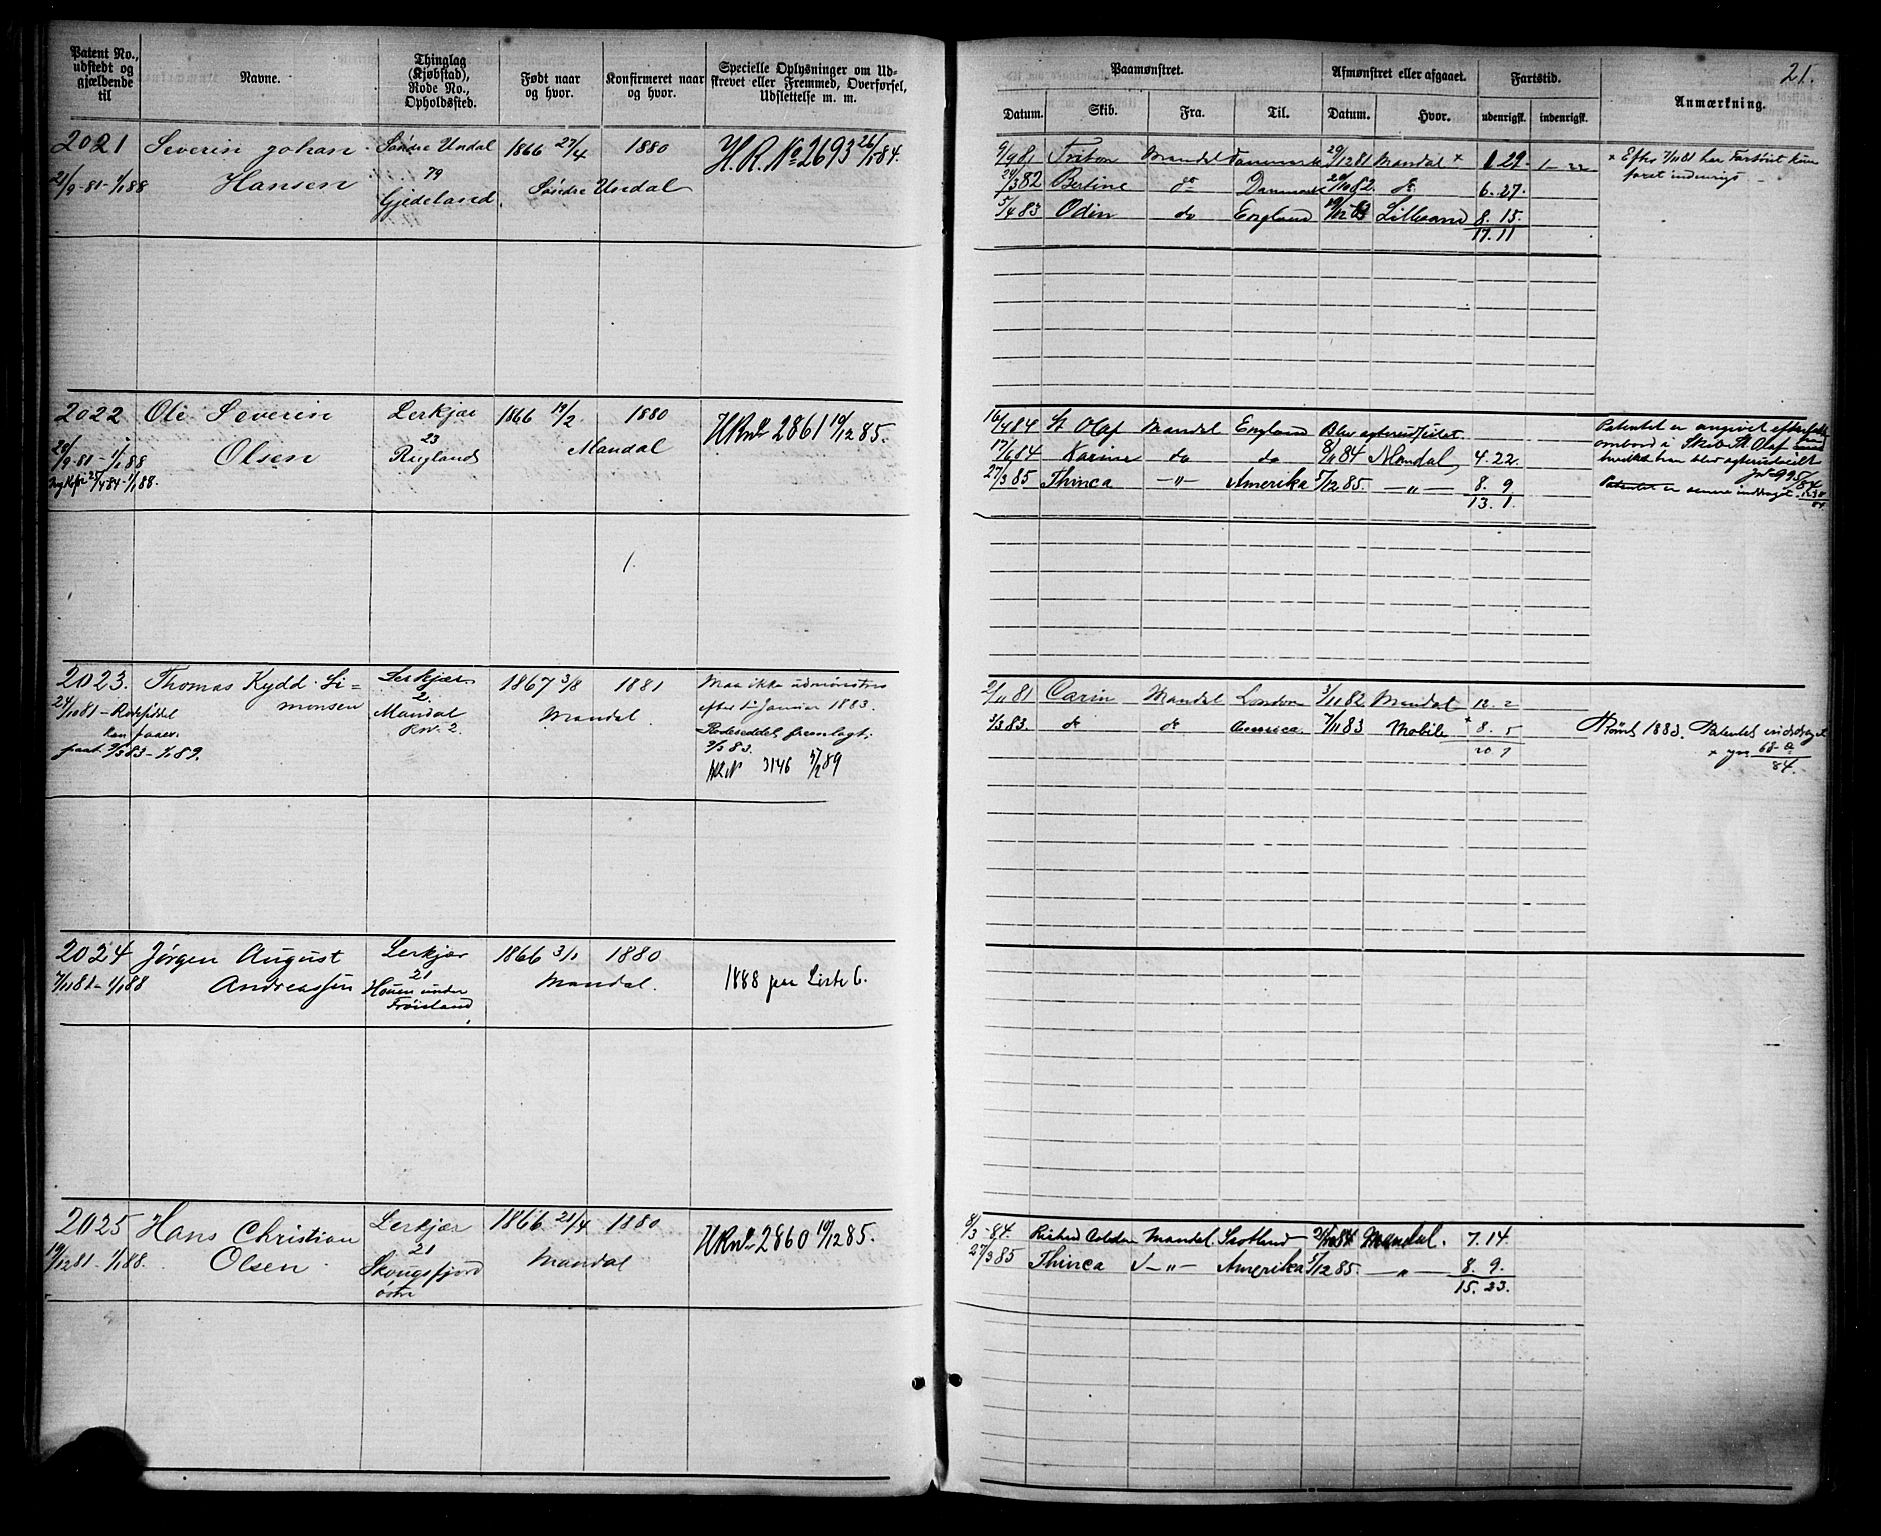 21.
Patent No., udstedt og gjældende til
Navne.
Thinglag (Kjøbstad), Rode No., Opholdssted.
Født naar og hvor.
Konfirmeret naar og hvor.
Specielle Oplysninger om Udskrevet eller Fremmed, Overførsel, Udslettelse m. m.
Paamønstret.
Afmønstret eller afgaaet.
Fartstid.
Anmærkning.
Datum. Skib. Fra. Til. Datum. Hvor. udenrigsk. indenrigsk.
2021 Severin Johan Søndre Undal 1866 27/4 1880 H.R. No 2693 26/1 84.
21/9-81-1/1 88 Hansen 79 Søndre Undal
Gjedeland.
9/9 81 Triton Mandal Danmark 29/12 81 Mandal x 1 29 1 - 22 x Efter 7/11 81 har Fartøiet kun
24/3 82 Bertine do Danmark 20/10 82 do 6. 27. faret indenrigs
5/4 83 Odin do England 19/12 83 Lillesand 8. 15.
17. 11
2022 Ole Severin Lerkjær 1866 19/2 1880 HRNo 2861 19/12 85.
29/9-81-1/1 88 Olsen 23 Mandal
25/4 84-1/1 88. Ruglands
16/4 84 St Olaf Mandal England Blev agterudseilet. Patentet er angivet efterladt
17/6 84 Karine do do 8/11 84 Mandal 4. 22. ombord i Skibet St. Olaf
27/3 85 Thinca -"- Amerika 5/12 85. -"- 8. 9 hvilket han blev agterudseilt
13. 1. Patentet er senere inddraget
2023. Thomas Kydd Si= Lerkjær 1867 3/8 1881 Maa ikke udmønstres
24/10 81 - Rodeseddel monsen 2. Mandal. efter 1ste Januar 1883.
Mandal Rodeseddel fremlagt:
3/3 83 - 1/1 89. Rno. 2. 3/3 83.
HRN 3146 5/2 89
2/11 81 Carin Mandal London 3/11 82 Mandal 12. 2
3/3 83. do do America 7/11 83 Mobile x 8. 5 Rømt 1883. Patentet inddraget
20. 7 x 84.
2024 Jørgen August Lerkjær 1866 3/1 1880
7/11 81-1/1 88 Andreassen 21 Mandal. 1888 paa Liste C.
Houen under
Frøisland.
2025 Hans Christian Lerkjær 1866 21/4 1880 HRNo 2860 19/12 85.
19/12 81-1/1 88. Olsen. 21 Mandal
Skougsfjord
østre
8/3-84. Richard Cobden Mandal Scotland 84 Mandal. 7. 14.
27/3 85 Thinca -"- Amerika 5/12 85. -"- 8. 9.
15. 23.